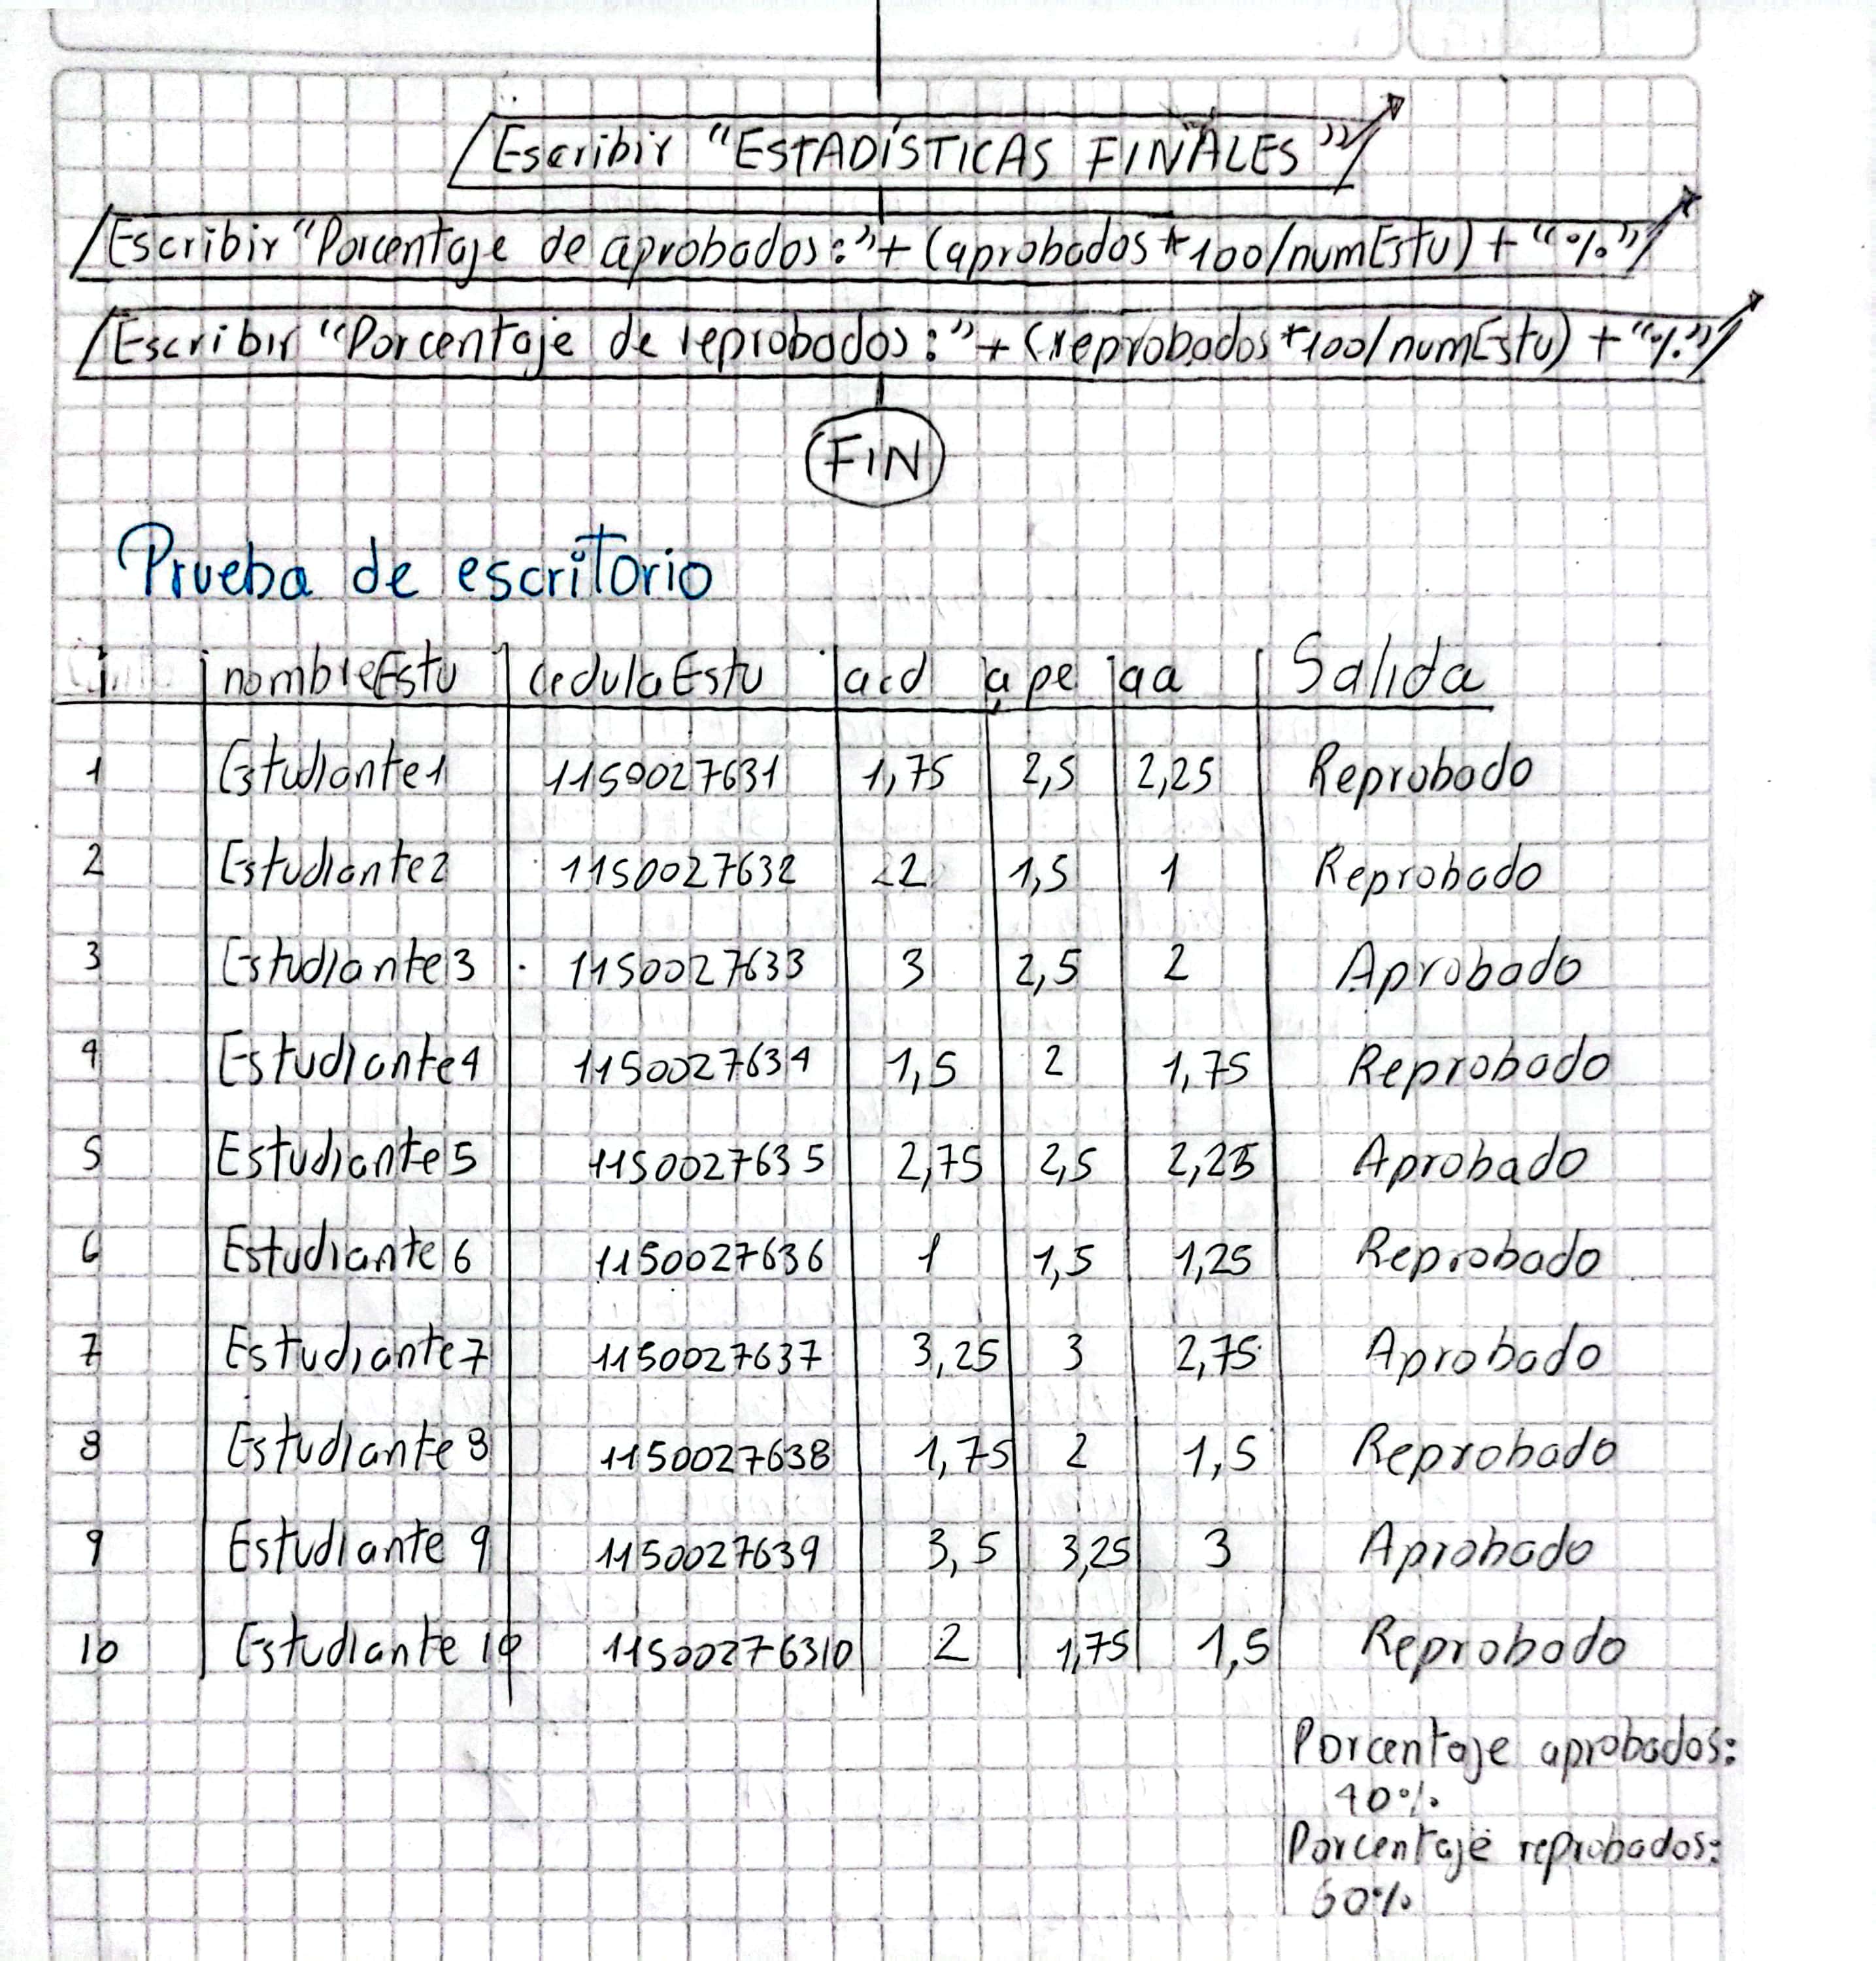 Escribir "ESTADÍSTICAS FINALES"
Escribir "Porcentaje de aprobados:" + (aprobados * 100/numEstu) + "%"
Escribir "Porcentaje de reprobados:" + (reprobados * 100/numEstu) + "%"
FIN
Prueba de escritorio
i nombreEstu cedulaEstu acd ape aa Salida
1 Estudiante1 1150027631 1,75 2,5 2,25 Reprobado
2 Estudiante2 1150027632 2 1,5 1 Reprobado
3 Estudiante3 1150027633 3 2,5 2 Aprobado
4 Estudiante4 1150027634 1,5 2 1,75 Reprobado
5 Estudiante5 1150027635 2,75 2,5 2,25 Aprobado
6 Estudiante6 1150027636 1 1,5 1,25 Reprobado
7 Estudiante7 1150027637 3,25 3 2,75 Aprobado
8 Estudiante8 1150027638 1,75 2 1,5 Reprobado
9 Estudiante 9 1150027639 3,5 3,25 3 Aprobado
10 Estudiante 10 11500276310 2 1,75 1,5 Reprobado
Porcentaje aprobados:
40%
Porcentaje reprobados:
60%